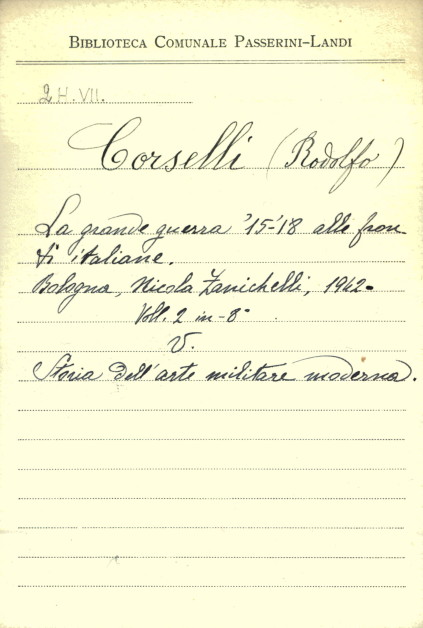 BIBLIOTECA COMUNALE PASSERINI-LANDI
2 H. VII.
Corselli (Rodolfo)
La grande guerra '15-'18 alle fron
ti italiane.
Bologna, Nicola Zanichelli, 1942-
Voll. 2 in-8°
V.
Storia dell'arte militare moderna.